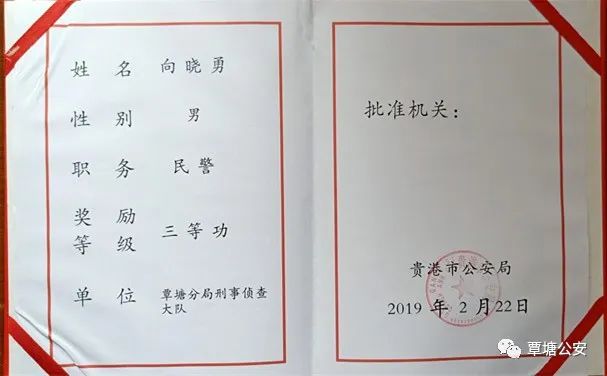 姓名 向晓勇
性别 男
职务 民警
奖励
等级 三等功
单位 覃塘分局刑事侦查
大队
批准机关：
贵港市公安局
2019 年 2 月 22 日
覃塘公安